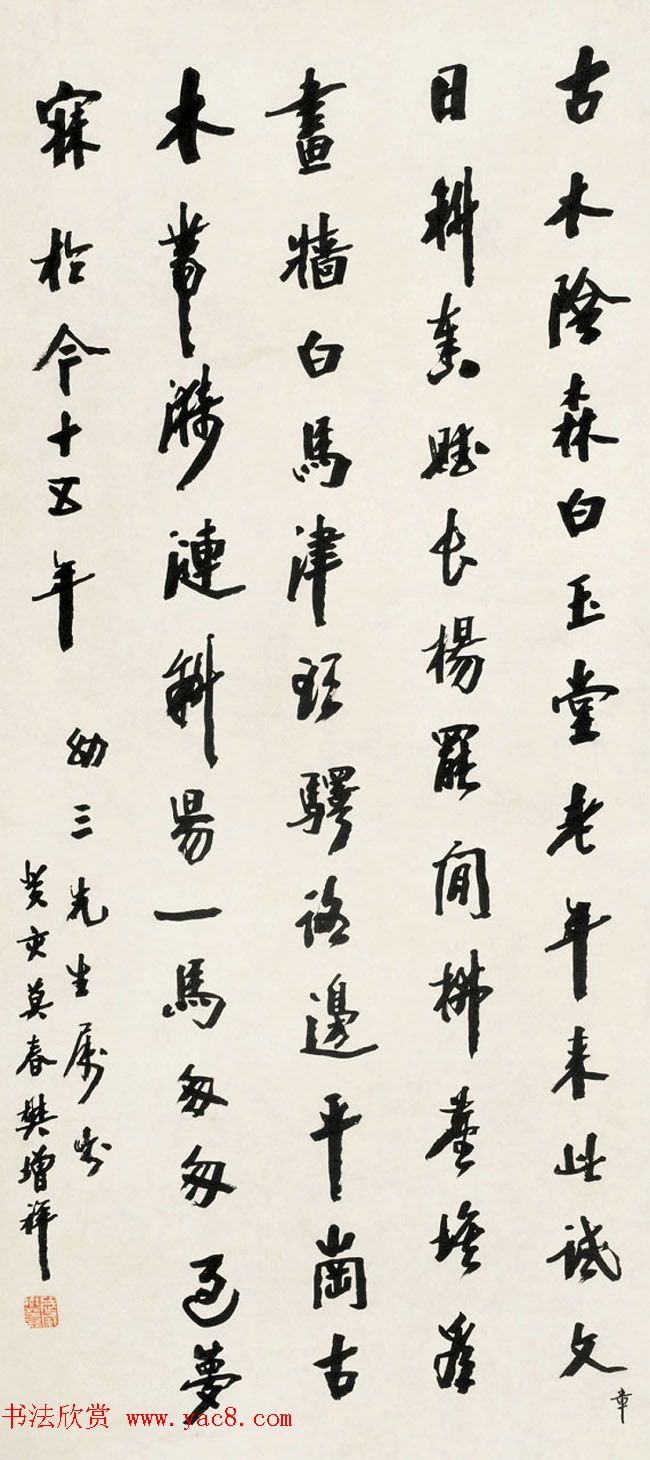 古木陰森白玉堂老年来此試文章
日斜奏賦長楊罷閒拂塵埃看
畫牆白馬津頭驛路邊平崗古
木帶漪漣斜陽一馬匆匆過夢
寐於今十五年
幼三先生属
癸亥莫春樊增祥
书法欣赏 www.yac8.com